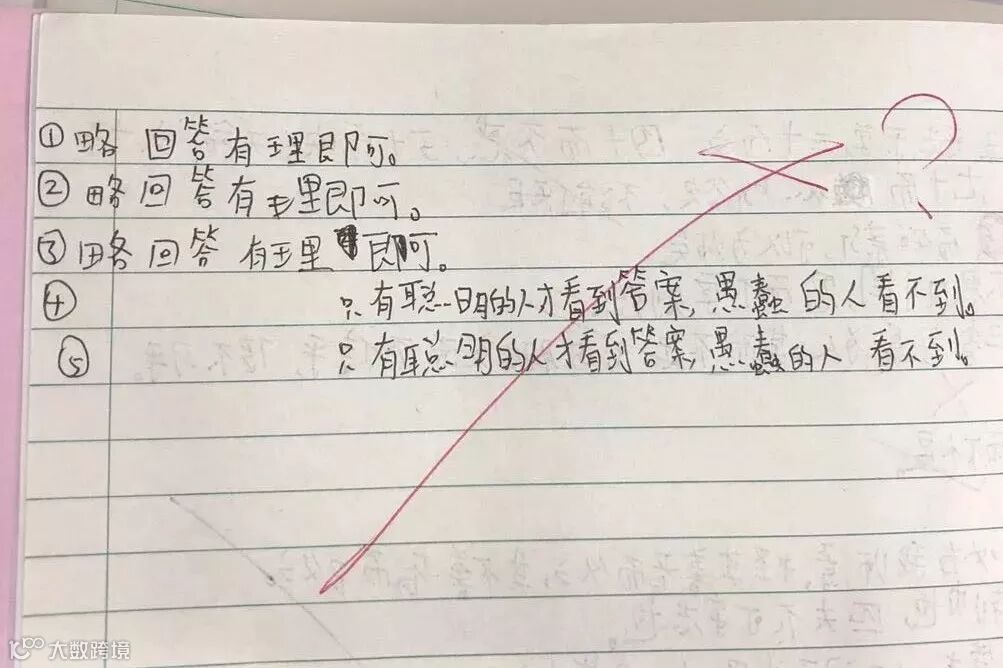 ①略 回答有理即可。
②略回答有理即可。
③略回答 有理即可。
④ 只有聪明的人才看到答案,愚蠢的人看不到。
⑤ 只有聪明的人才看到答案,愚蠢的人 看不到。
?
大数跨境